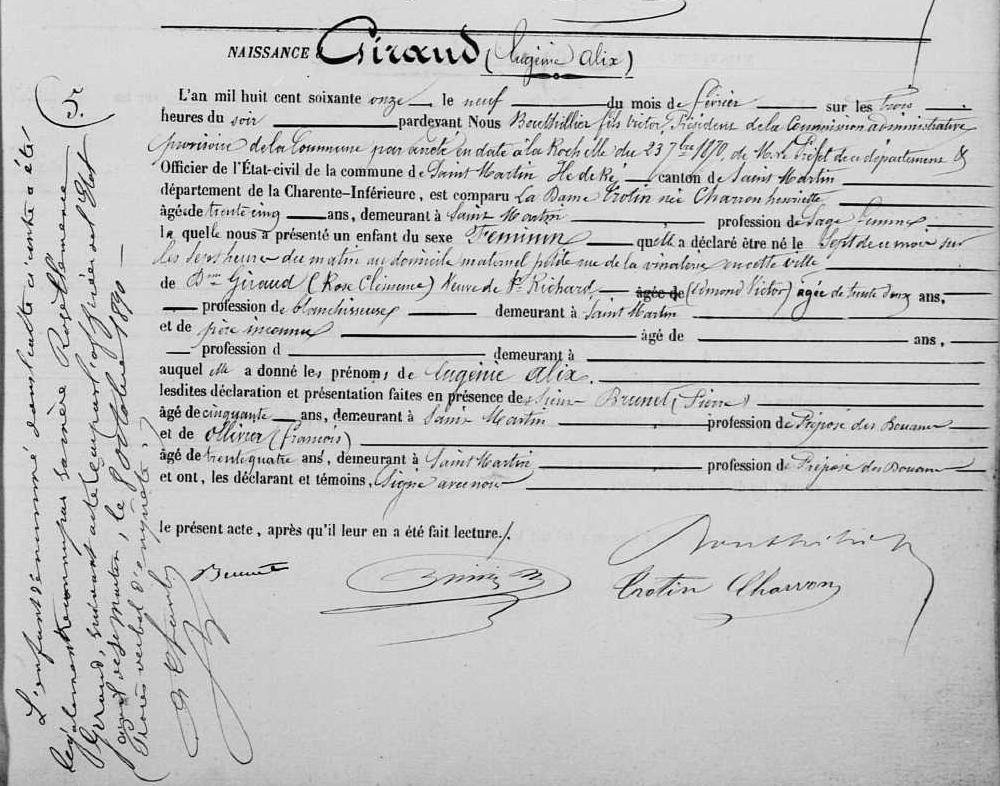 NAISSANCE d Giraud (Eugénie Alix)
L'an mil huit cent soixante onze, le neuf du mois de février sur les trois
heures du soir pardevant Nous Bouthillier fils Victor, Président de la Commission administrative
provisoire de la Commune par arrêté en date à la Rochelle du 23 7bre 1870, de Mr le Préfet de ce département &
Officier de l'État-civil de la commune de Saint Martin Ile de Ré canton de Saint Martin
département de la Charente-Inférieure, est comparu La Dame Trotin née Charron henriette
âgée de trente cinq ans, demeurant à Saint Martin profession de Sage femme
la quelle nous a présenté un enfant du sexe Féminin quelle a déclaré être né le Sept de ce mois sur
les sept heures du matin au domicile maternel petite rue de la vinaterie en cette ville
de Dme Giraud (Rose Clémence) Veuve de Sr Richard âgée de (Edmond Victor) âgée de trente deux ans,
profession de blanchisseuse demeurant à Saint Martin
et de père inconnu âgé de ans,
profession d demeurant à
auquel elle a donné les prénoms de Eugénie Alix.
lesdites déclaration et présentation faites en présence des Sieur Brunet (Pierre)
âgé de cinquante ans, demeurant à Saint Martin profession de Préposé des Douanes
et de Ollivier (françois)
âgé de trente quatre ans, demeurant à Saint Martin profession de Préposé des Douanes
et ont, les déclarant et témoins, Signé avec nous
le présent acte, après qu'il leur en a été fait lecture./.
Bouthillier
Brunet
Trotin Charron
L'enfant dénommé dans l'acte ci contre a été
légalement reconnu par sa mère Rose Clémence
Giraud, suivant acte reçu par l'officier de l'Etat
civil de St Martin, le 8 Octobre 1890
Procès verbal d'enquête